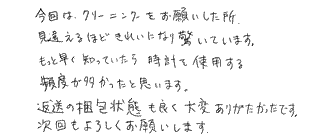 今回は、クリーニングをお願いした所、
見違えるほどきれいになり驚いています。
もっと早く知っていたら時計を使用する
頻度が多かったと思います。
返送の梱包状態も良く大変ありがたかったです。
次回もよろしくお願いします。